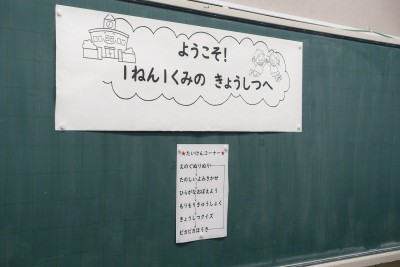 ようこそ!
1ねん1くみの きょうしつへ
★たいけんコーナー★
えのぐぬりぬり
たのしいよみきかせ
ひらがなおぼえよう
もりもりきゅうしょく
きょうしつクイズ
ピカピカほうき